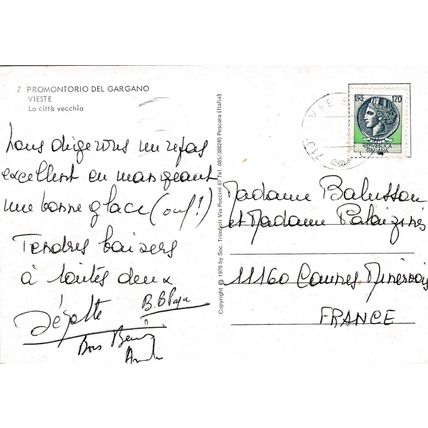 7 PROMONTORIO DEL GARGANO
VIESTE
La città vecchia
Nous digérons un repas
excellent en mangeant
une bonne glace (ouf!)
Tendres baisers
à toutes deux
B. Bises
Bons Baisers
Copyright © 1979 by Soc. Trimboli Via Puccini 6 Tel. 085/388240 Pescara (Italia)
LIRE 120
VIE
Madame Balussou
et Madame Palazines
11160 Caunes Minervois
FRANCE